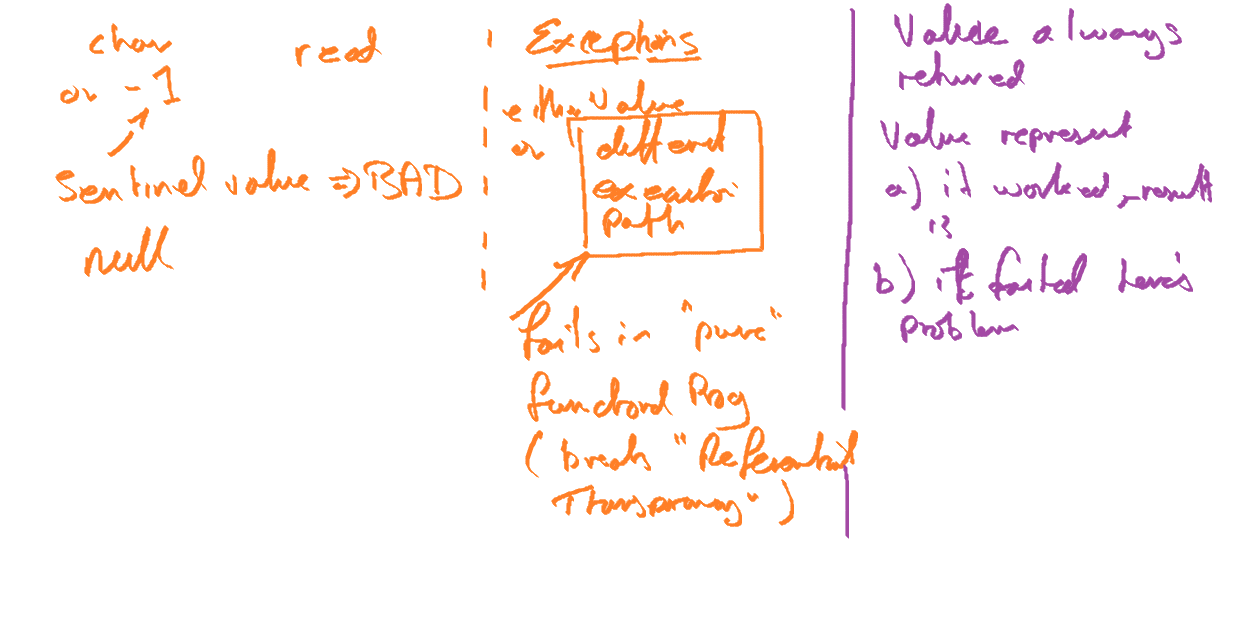 char read
or -1
Sentinel value => BAD
null
Exceptions
either value
or different
execution
path
fails in "pure"
functional Prog
(breaks "Referential
Transparency")
Value always
returned
Value represent
a) it worked, result
is
b) it failed here's
problem